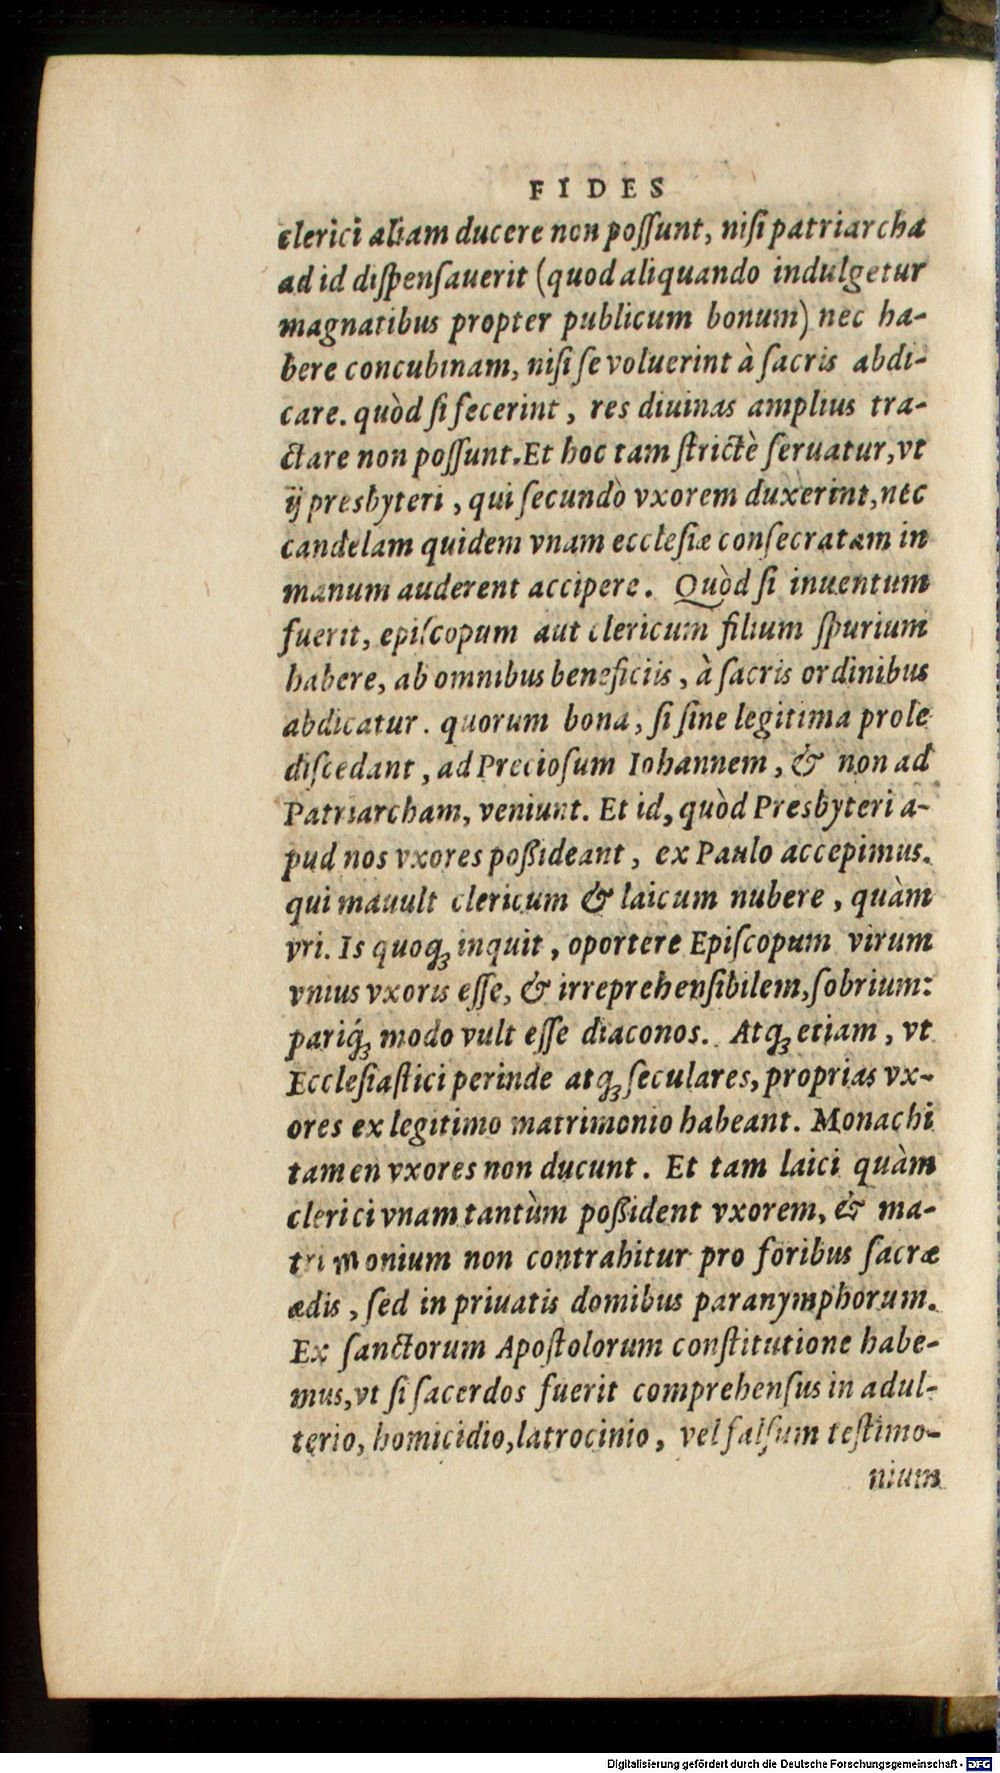 FIDES
clerici aliam ducere non poſſunt, niſi patriarcha
ad id diſpenſauerit (quod aliquando indulgetur
magnatibus propter publicum bonum) nec ha-
bere concubinam, niſi ſe voluerint à ſacris abdi-
care. quòd ſi fecerint, res diuinas amplius tra-
ctare non poſſunt. Et hoc tam ſtrictè ſeruatur, vt
ij presbyteri, qui ſecundò vxorem duxerint, nec
candelam quidem vnam eccleſiæ conſecratam in
manum auderent accipere. Quòd ſi inuentum
fuerit, epiſcopum aut clericum filium ſpurium
habere, ab omnibus beneficiis, à ſacris ordinibus
abdicatur. quorum bona, ſi ſine legitima prole
diſcedant, ad Precioſum Iohannem, & non ad
Patriarcham, veniunt. Et id, quòd Presbyteri a-
pud nos vxores poßideant, ex Paulo accepimus.
qui mauult clericum & laicum nubere, quàm
vri. Is quoq; inquit, oportere Epiſcopum virum
vnius vxoris eſſe, & irreprehenſibilem, ſobrium:
pariq́; modo vult eſſe diaconos. Atq; etiam, vt
Eccleſiaſtici perinde atq; ſeculares, proprias vx-
ores ex legitimo matrimonio habeant. Monachi
tamen vxores non ducunt. Et tam laici quàm
clerici vnam tantùm poßident vxorem, & ma-
trimonium non contrahitur pro foribus ſacræ
ædis, ſed in priuatis domibus paranymphorum.
Ex ſanctorum Apoſtolorum conſtitutione habe-
mus, vt ſi ſacerdos fuerit comprehenſus in adul-
terio, homicidio, latrocinio, vel falſum teſtimo-
nium
Digitalisierung gefördert durch die Deutsche Forschungsgemeinschaft - DFG